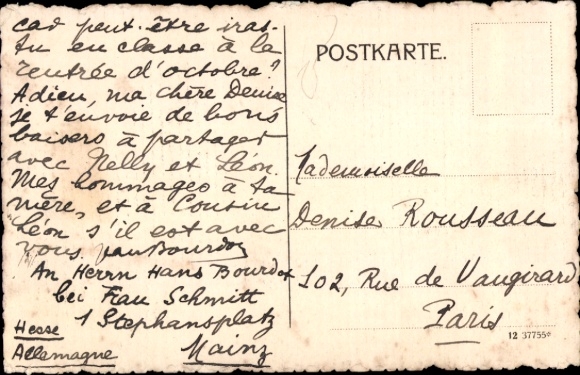 car peut-être iras-
tu en classe à la
rentrée d'octobre?
Adieu, ma chère Denise
je t'envoie de bons
baisers à partager
avec Nelly et Léon.
Mes hommages à ta
mère, et à Cousin
Léon s'il est avec
vous.
An Herrn Hans Bourdot
bei Frau Schmitt
1 Stephansplatz
Mainz
Hesse
Allemagne
POSTKARTE.
Mademoiselle
Denise Rousseau
102, Rue de Vaugirard
Paris
12 37755